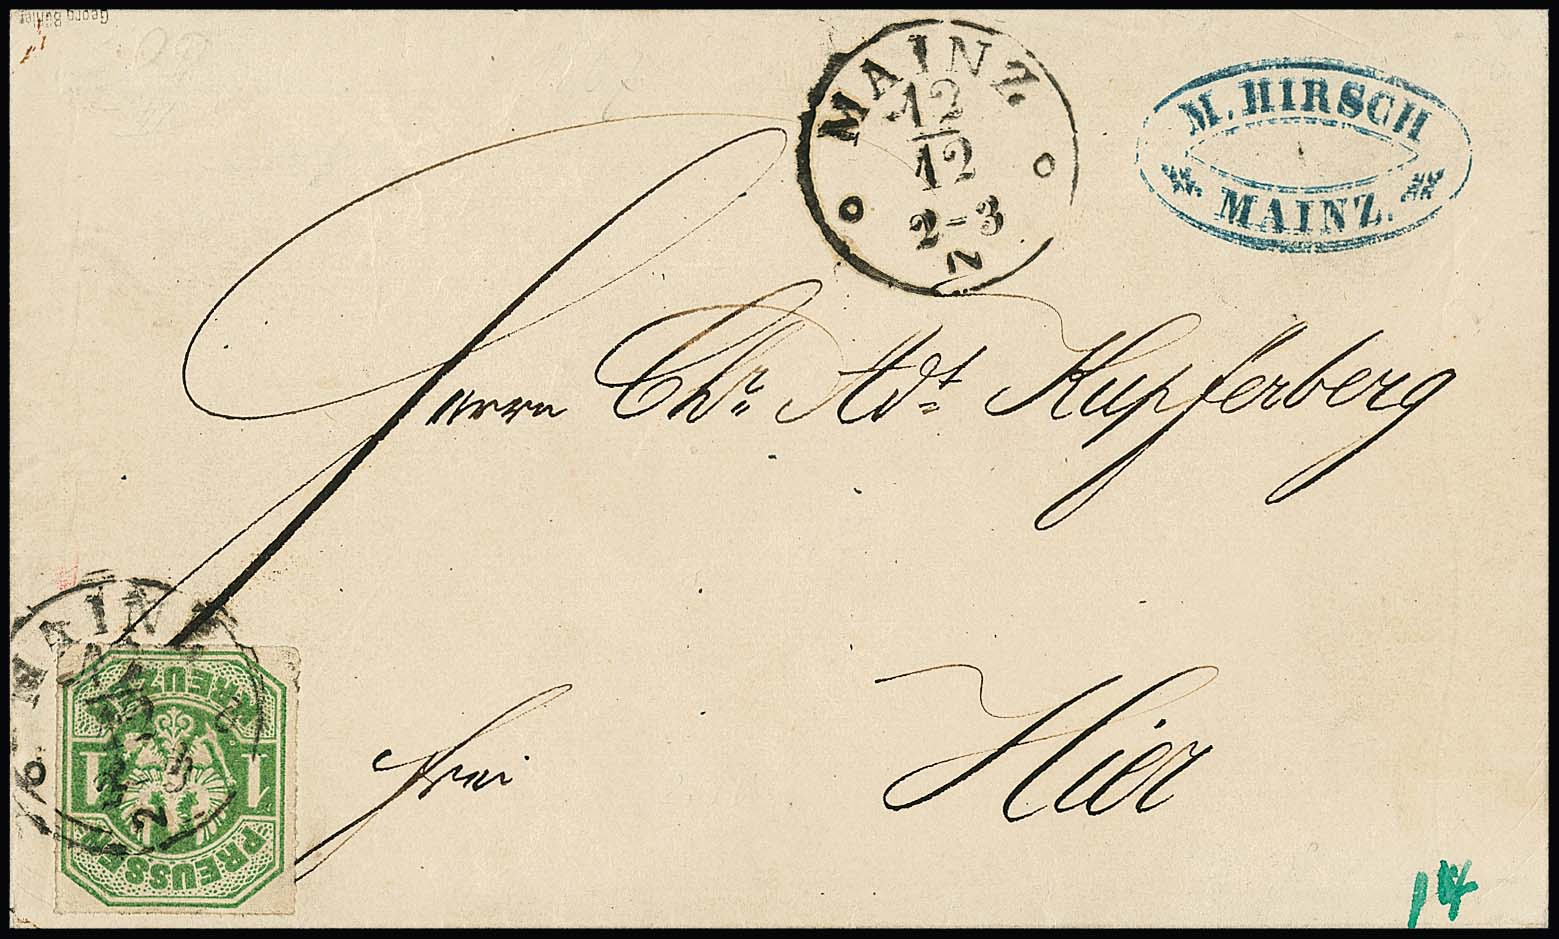 Georg Bühler
MAINZ.
12
12
2-3
N
M. HIRSCH
MAINZ.
Herrn Chr. Adt. Kupferberg
Hier
frei
MAINZ
2
KREUZER
1 1
PREUSSEN